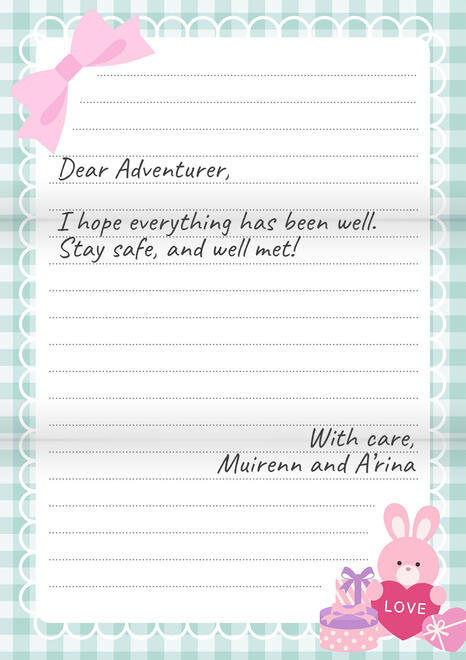 Dear Adventurer,
I hope everything has been well.
Stay safe, and well met!
With care,
Muirenn and A'rina
LOVE